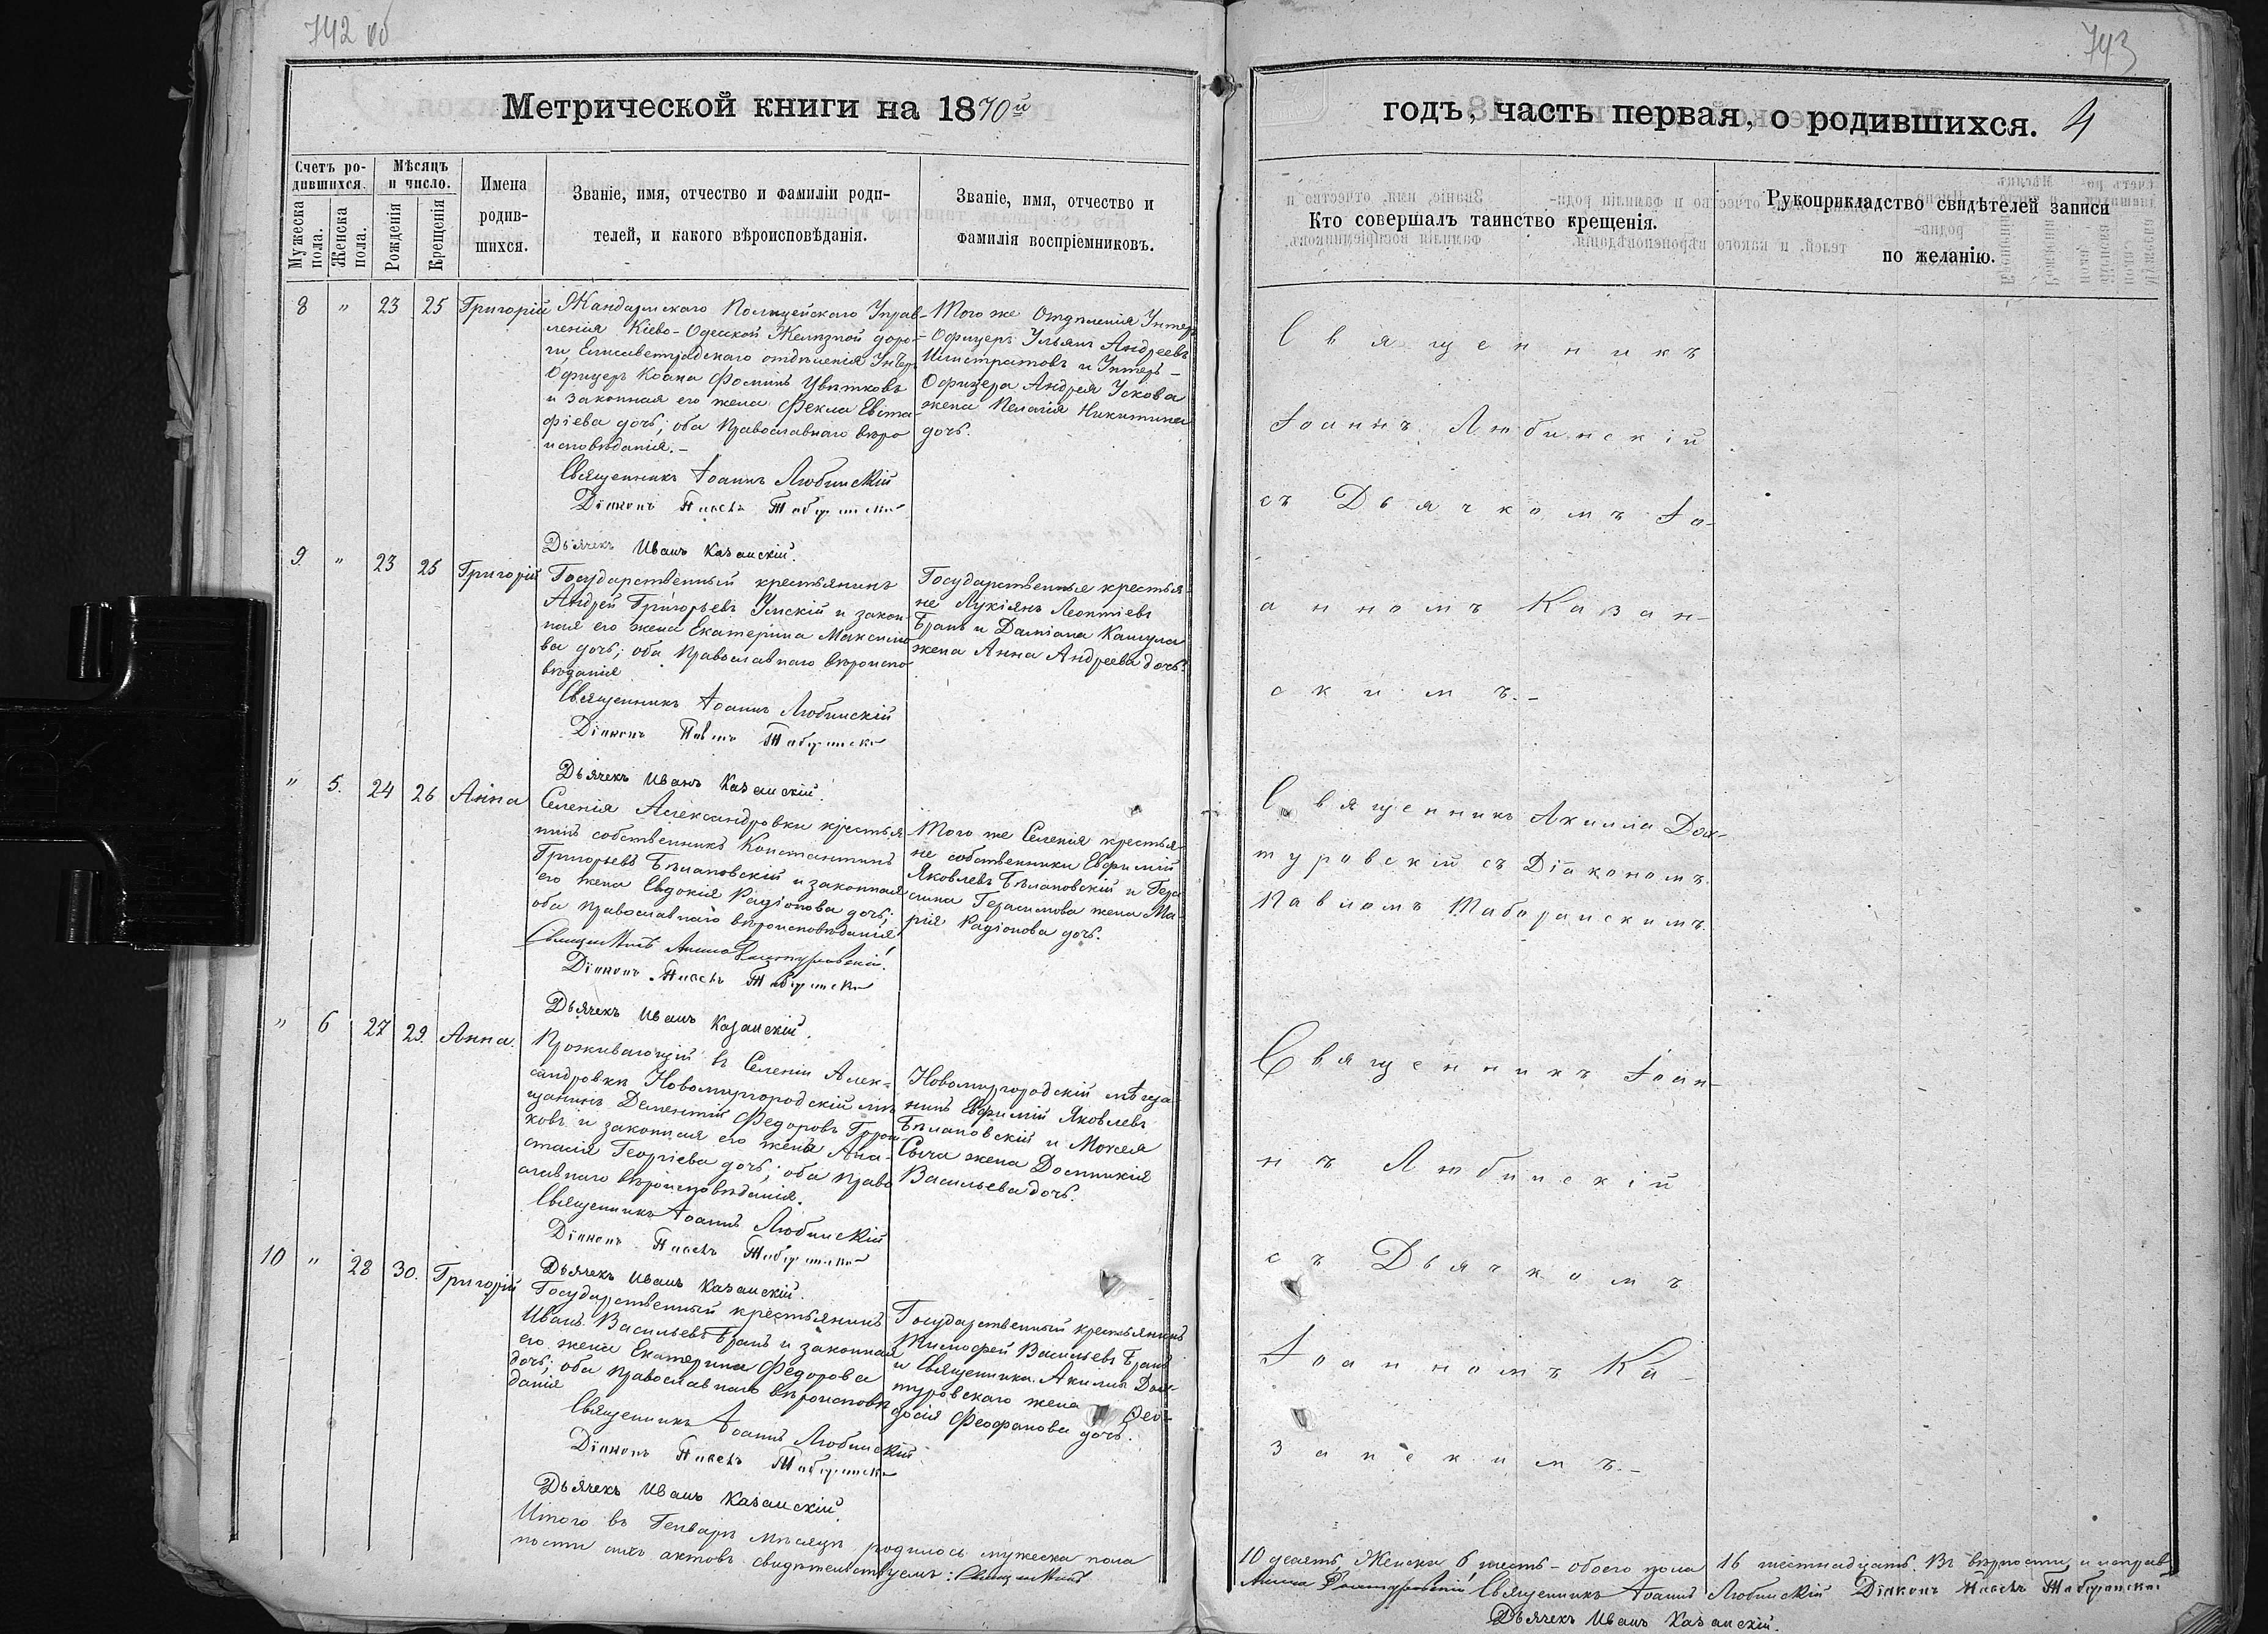 742 об
Метрической книги на 1870й
Счетъ ро-
дившихся.
Мѣсяцъ
и число.
Мужеска пола.
Женска пола.
Рожденія
Крещенія
Имена
родив-
шихся.
Званіе, имя, отчество и фамиліи роди-
телей, и какого вѣроисповѣданія.
Званіе, имя, отчество и
фамилія воспріемниковъ.
8 " 23 25 Григорій
Жандармскаго Полицейскаго Управ-
ленія Кіево-Одесской Желѣзной доро-
ги, Елисаветградскаго отдѣленія Унтеръ
Офицеръ Фоминъ Цвѣтковъ
и законная его жена Фекла Евста-
фіева дочь; оба Православнаго вѣро
исповѣданія.-
Священникъ Іоаннъ Любинскій
Діаконъ Павелъ
Дьячекъ Иванъ Казанскій.
Того же Отдѣленія Унтеръ
-Офицеръ Ульянъ Андреевъ
и Унтеръ-
Офицера Андрея Ускова
жена Пелагія Никитина
дочь.
9 " 23 25 Григорій
Государственный крестьянинъ
Андрей Григорьевъ Умскій и закон-
ная его жена Екатерина Максимо
ва дочь; оба Православнаго вѣроиспо
вѣданія
Священникъ Іоаннъ Любинскій
Діаконъ Павелъ
Дьячекъ Иванъ Казанскій.
Государственные крестья-
не Лукіянъ Леонтіевъ
Бранъ и Даміана
жена Анна Андреева дочь.
" 5. 24 26 Анна
Селенія Александровки крестья
нинъ собственникъ Константинъ
Григорьевъ Бѣлановскій и законная
его жена Евдокія Радіонова дочь;
оба православнаго вѣроисповѣданія
Священникъ
Діаконъ Павелъ
Дьячекъ Иванъ Казанскій.
Того же Селенія крестья-
не собственники Евфимій
Яковлевъ Бѣлановскій и Гера
сима Герасимова жена Ма-
рія Радіонова дочь.
" 6 27 29. Анна.
Проживающій въ Селеніи Алек-
сандровки Новомиргородскій мѣ
щанинъ Дементій Федоровъ
ковъ и законная его жена Ана-
стасія Георгіева дочь; оба право
славнаго вѣроисповѣданія.
Священникъ Іоаннъ Любинскій
Діаконъ Павелъ
Дьячекъ Иванъ Казанскій.
Новомиргородскій мѣща-
нинъ Евфимій Яковлевъ
Бѣлановскій и Мокея
Сыча жена Домникія
Васильева дочь.
10 " 28 30. Григорій
Государственный крестьянинъ
Иванъ Васильевъ Бранъ и законная
его жена Екатерина Федорова
дочь; оба православнаго вѣроисповѣ
данія
Священникъ Іоаннъ Любинскій
Діаконъ Павелъ
Дьячекъ Иванъ Казанскій.
Государственный крестьянинъ
Тимофей Васильевъ Бранъ
и Священника Акилы Док-
туровскаго жена Фео-
досія Феофанова дочь.
Итого въ Генварѣ мѣсяцѣ родилось мужеска пола
ности сихъ актовъ свидѣтельствуемъ: Священникъ
743
годъ, часть первая, о родившихся. 4
Кто совершалъ таинство крещенія.
Рукоприкладство свидѣтелей записи
по желанію.
Священникъ
Іоаннъ Любинскій
съ Дьячкомъ Іо-
анномъ Казан-
скимъ.-
Священникъ Акилла Док-
туровскій съ Діакономъ
Павломъ Таборанскимъ.
Священникъ Іоан-
нъ Любинскій
съ Дьячкомъ
Іоанномъ Ка-
занскимъ.-
10 десять, Женска 6, шесть - обоего пола 16 шестнадцать. Въ вѣрности и исправ-
Священникъ Іоаннъ Любинскій Діаконъ Павелъ
Дьячекъ Иванъ Казанскій.